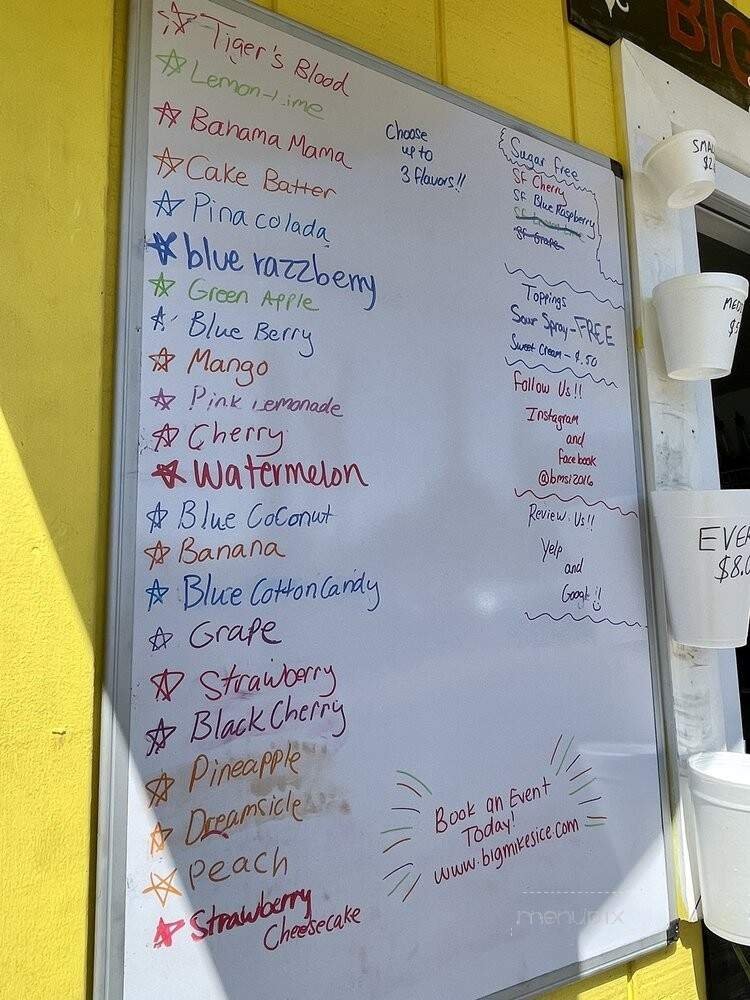 Tiger's Blood
Lemon-Lime
Bahama Mama
Cake Batter
Pina colada
blue razzberry
Green Apple
Blue Berry
Mango
Pink Lemonade
Cherry
Watermelon
Blue Coconut
Banana
Blue Cotton Candy
Grape
Strawberry
Black Cherry
Pineapple
Dreamsicle
Peach
Strawberry
Cheesecake
Choose
up to
3 flavors!!
Sugar Free
SF Cherry
SF Blue Raspberry
SF Grape
Toppings
Sour Spray - FREE
Sweet Cream - $.50
Follow Us!!
Instagram
and
facebook
@bmsi2016
Review Us!!
Yelp
and
Google!!
Book an Event
Today!
www.bigmikesice.com
BIG
menupix